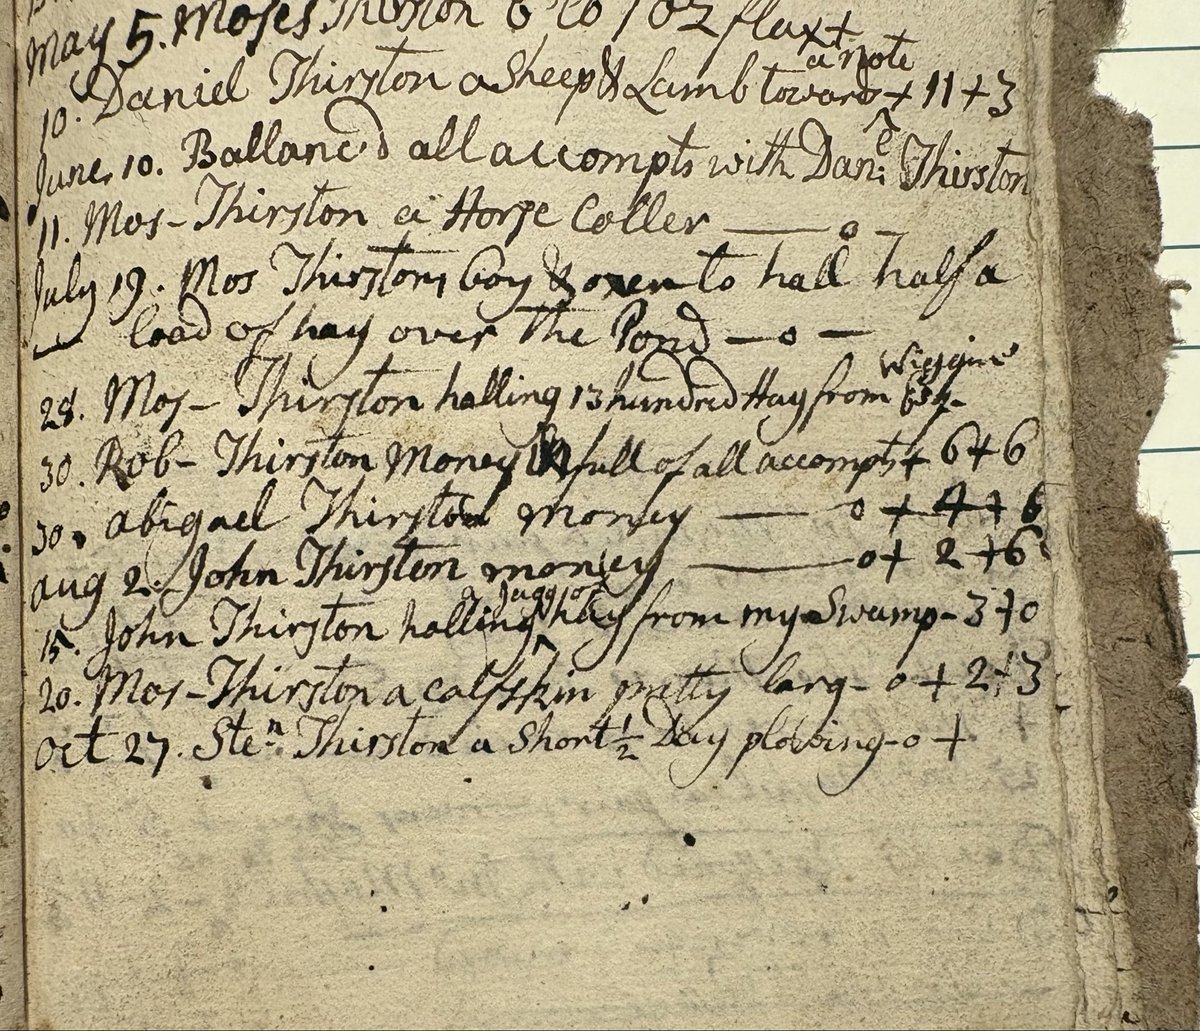 May 5. Moses Thirston 6 lb 10 oz flax +
a note
10. Daniel Thirston a Sheep & Lamb towards + 11 + 3
June. 10. Ballanc'd all accompts with Dan:e Thirston
11. Mos- Thirston a Horse Coller — o -
July 19. Mos Thirstons boy & oxen to hall half a
load of hay over the Pond - o -
Wiggins
28. Mos- Thirston halling 13 hundred Hay from
30. Rob- Thirston Money In full of all accompts + 6 + 6
30. abigael Thirston money — o + 4 + 6
aug 2. John Thirston money — o + 2 + 6
a Jagg of
15. John Thirston halling ^ hay from my Swamp - 3 + 0
20. Mos- Thirston a calfskin pretty larg - o + 2 + 3
Oct 27. Ste:n Thirston a Short 1/2 Day plowing - o +